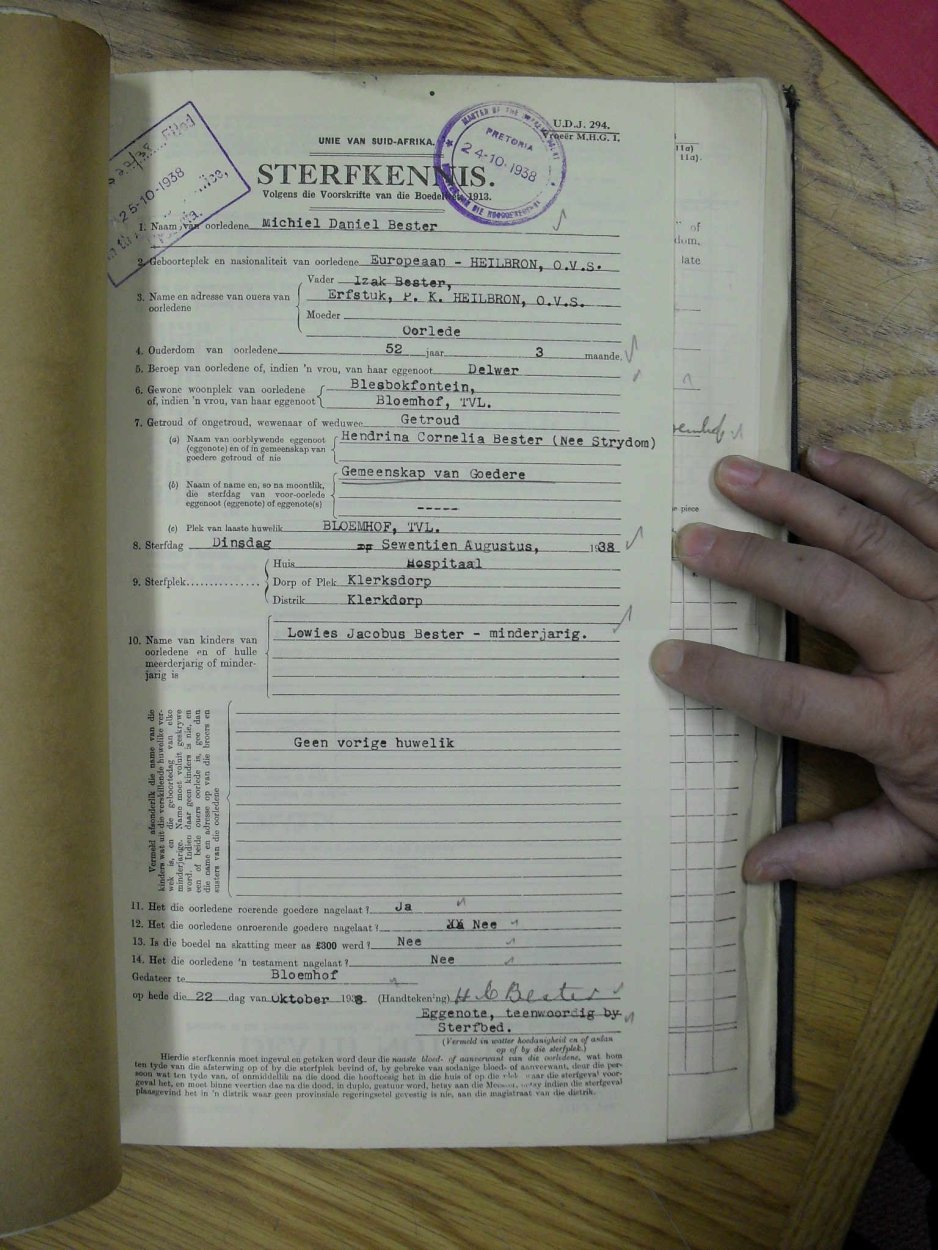 UNIE VAN SUID-AFRIKA.
U.D.J. 294.
Vroeër M.H.G. 1.
PRETORIA
24-10-1938
Filed
25-10-1938
STERFKENNIS.
Volgens die Voorskrifte van die Boedelwet, 1913.
1. Naam van oorledene Michiel Daniel Bester
2. Geboorteplek en nasionaliteit van oorledene Europeaan - HEILBRON, O.V.S.
3. Name en adresse van ouers van oorledene
Vader Izak Bester,
Erfstuk, P. K. HEILBRON, O.V.S.
Moeder
Oorlede
4. Ouderdom van oorledene 52 jaar 3 maande.
5. Beroep van oorledene of, indien 'n vrou, van haar eggenoot Delwer
6. Gewone woonplek van oorledene Blesbokfontein,
of, indien 'n vrou, van haar eggenoot Bloemhof, TVL.
7. Getroud of ongetroud, wewenaar of weduwee Getroud
(a) Naam van oorblywende eggenoot Hendrina Cornelia Bester (Nee Strydom)
(eggenote) en of in gemeenskap van
goedere getroud of nie
Gemeenskap van Goedere
(b) Naam of name en, so na moontlik,
die sterfdag van voor-oorlede
eggenoot (eggenote) of eggenote(s) -----
(c) Plek van laaste huwelik BLOEMHOF, TVL.
8. Sterfdag Dinsdag Sewentien Augustus, 1938
9. Sterfplek
Huis Hospitaal
Dorp of Plek Klerksdorp
Distrik Klerkdorp
10. Name van kinders van
oorledene en of hulle
meerderjarig of minder-
jarig is
Lowies Jacobus Bester - minderjarig.
Vermeld afsonderlik die name van die
kinders wat uit die verskillende huwelike ver-
wek is, en die geboortedag van elke
minderjarige. Name moet voluit geskrywe
word. Indien daar geen kinders is nie, en
een of beide ouers oorlede is, gee dan
die name en adresse op van die broers en
susters van die oorledene
Geen vorige huwelik
11. Het die oorledene roerende goedere nagelaat? Ja
12. Het die oorledene onroerende goedere nagelaat? Nee
13. Is die boedel na skatting meer as £300 werd? Nee
14. Het die oorledene 'n testament nagelaat? Nee
Gedateer te Bloemhof
op hede die 22 dag van Oktober 1938 (Handtekening) H C Bester
Eggenote, teenwoordig by
Sterfbed.
(Vermeld in watter hoedanigheid en of aldan
op of by die sterfplek.)
Hierdie sterfkennis moet ingevul en geteken word deur die naaste bloed- of aanverwant van die oorledene, wat hom
ten tyde van die afsterwing op of by die sterfplek bevind of, by gebreke van sodanige bloed- of aanverwant, deur die per-
soon wat ten tyde van, of onmiddellik na die dood die hooftoesig het in die huis of op die plek waar die sterfgeval voor-
geval het, en moet binne veertien dae na die dood, in duplo, gestuur word, hetsy aan die Meester, hetsy indien die sterfgeval
plaasgevind het in 'n distrik waar geen provinsiale regeringsetel gevestig is nie, aan die magistraat van die distrik.
11a)
11a).
of
dom,
late
piece